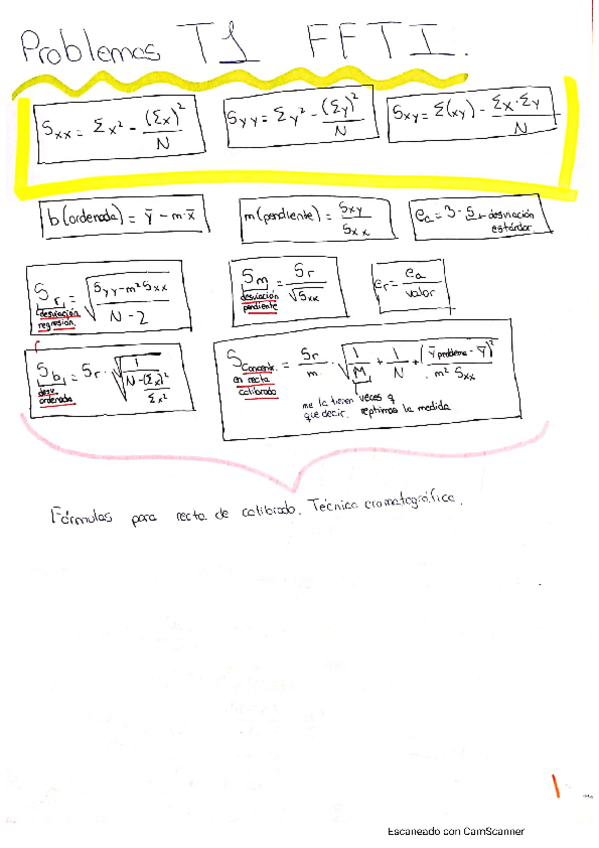 Problemas T1 FFTI.
Sxx = Σx² - (Σx)²/N
Syy = Σy² - (Σy)²/N
Sxy = Σ(xy) - Σx·Σy/N
b(ordenada) = ȳ - m·x̄
m(pendiente) = Sxy/Sxx
ea = 3·S → desviación estándar
Sr = √((Syy - m²Sxx)/(N-2))
desviación regresión
Sm = Sr/√Sxx
desviación pendiente
er = ea/valor
Sb = Sr·√(1/(N - (Σx)²/Σx²))
desv. ordenada
Sconcentr. en recta calibrado = Sr/m · √(1/M + 1/N + (ȳproblema - ȳ)²/(m² Sxx))
me la tienen que decir. veces q reptimos la medida
Fórmulas para recta de calibrado. Técnica cromatográfica.
1
Escaneado con CamScanner